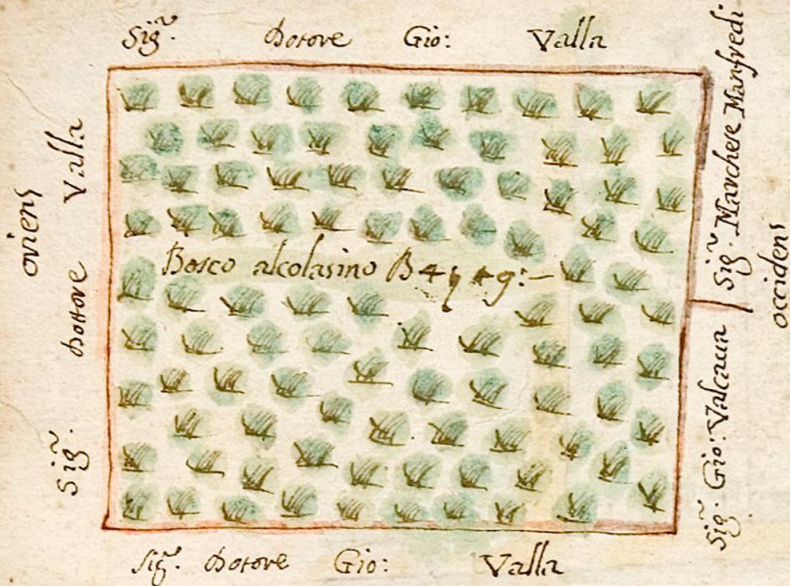 Sigr. Dotore Gio: Valla
oriens
Sigr. Dottore Valla
Bosco alcolasino B 4
Sigr. Marchere Manfredi
occidens
Sigr. Gio: Valcaua
Sigr. Dotore Gio: Valla